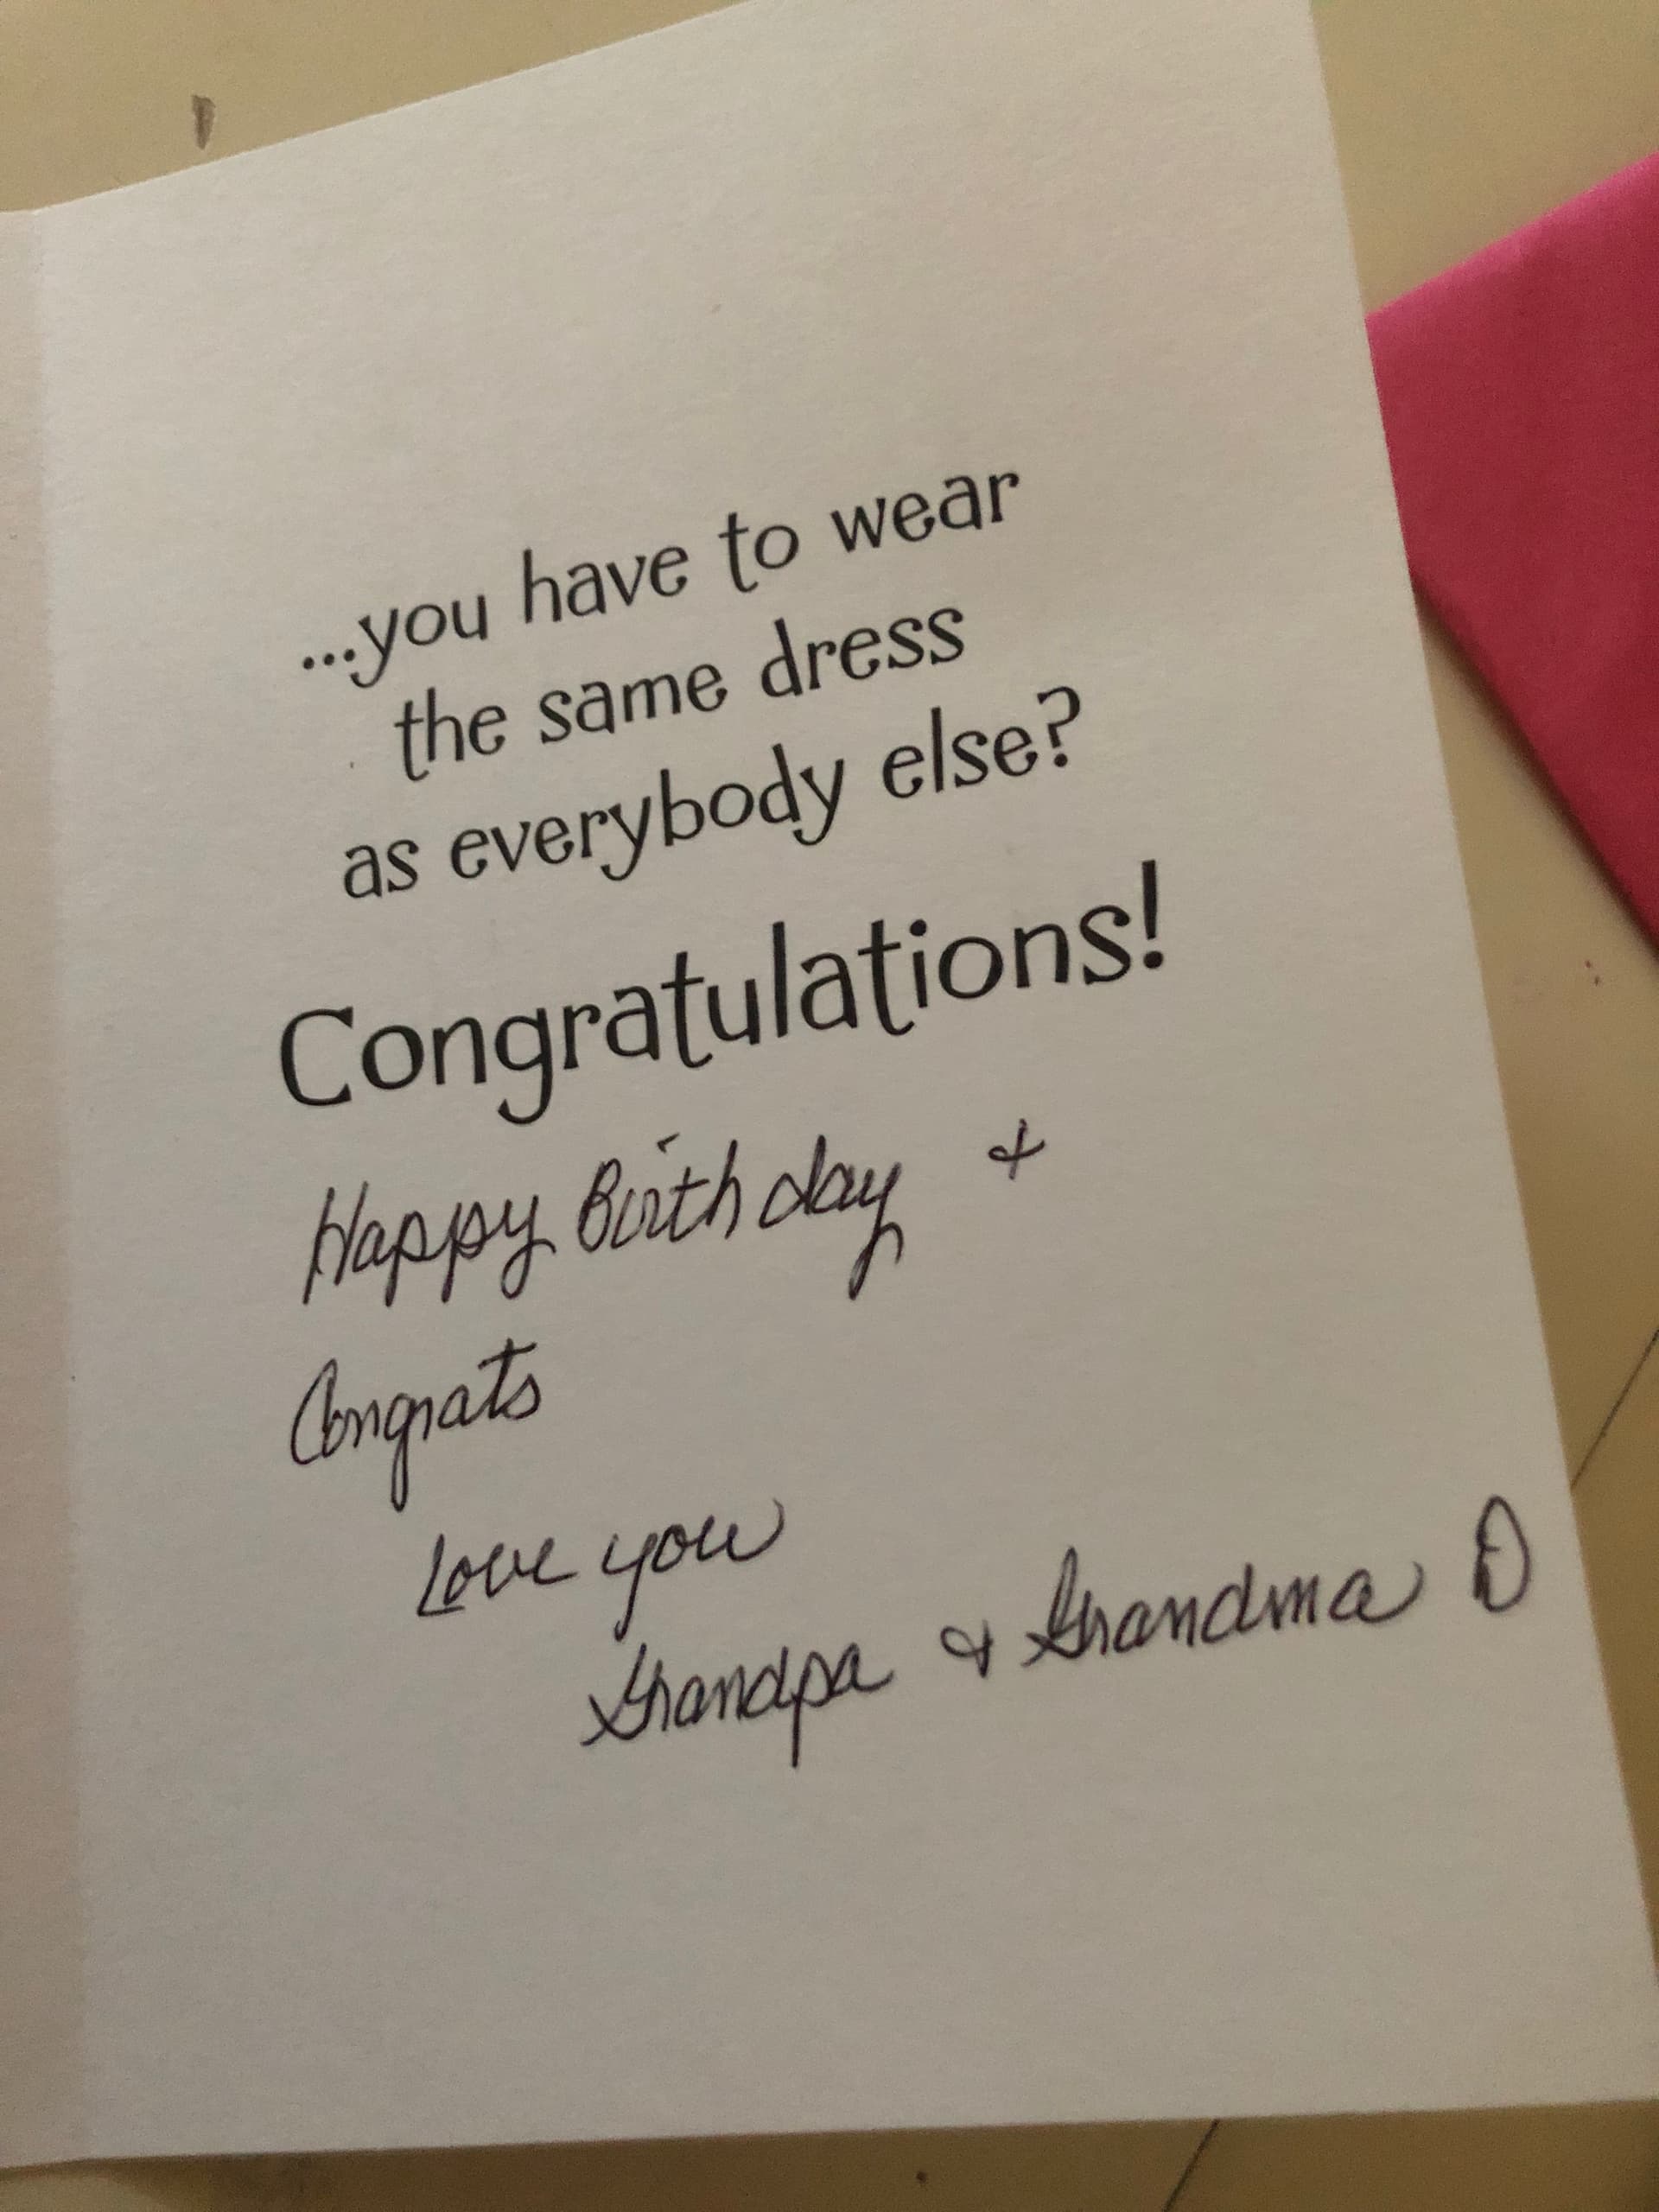 ...you have to wear
the same dress
as everybody else?
Congratulations!
Happy Birthday &
Congrats
Love you
Grandpa & Grandma D